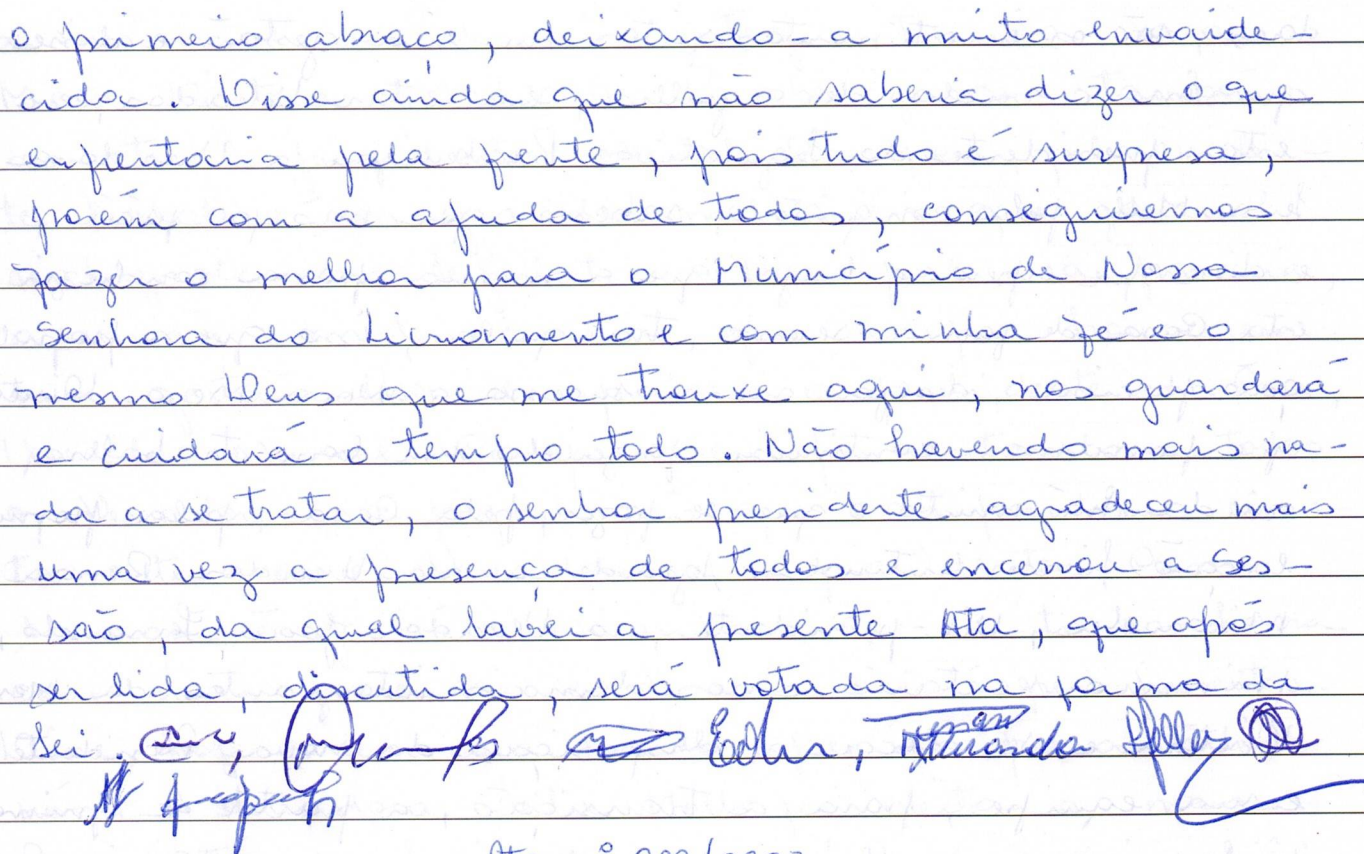 o primeiro abraço, deixando-a muito envaide-
cida. Disse ainda que não saberia dizer o que
enfrentaria pela frente, pois tudo é surpresa,
porém com a ajuda de todos, conseguiremos
fazer o melhor para o Município de Nossa
Senhora do Livramento e com minha fé e o
mesmo Deus que me trouxe aqui, nos guardará
e cuidará o tempo todo. Não havendo mais na-
da a se tratar, o senhor presidente agradeceu mais
uma vez a presença de todos e encerrou a Ses-
são, da qual lavrei a presente Ata, que após
ser lida, discutida, será votada na forma da
Lei.